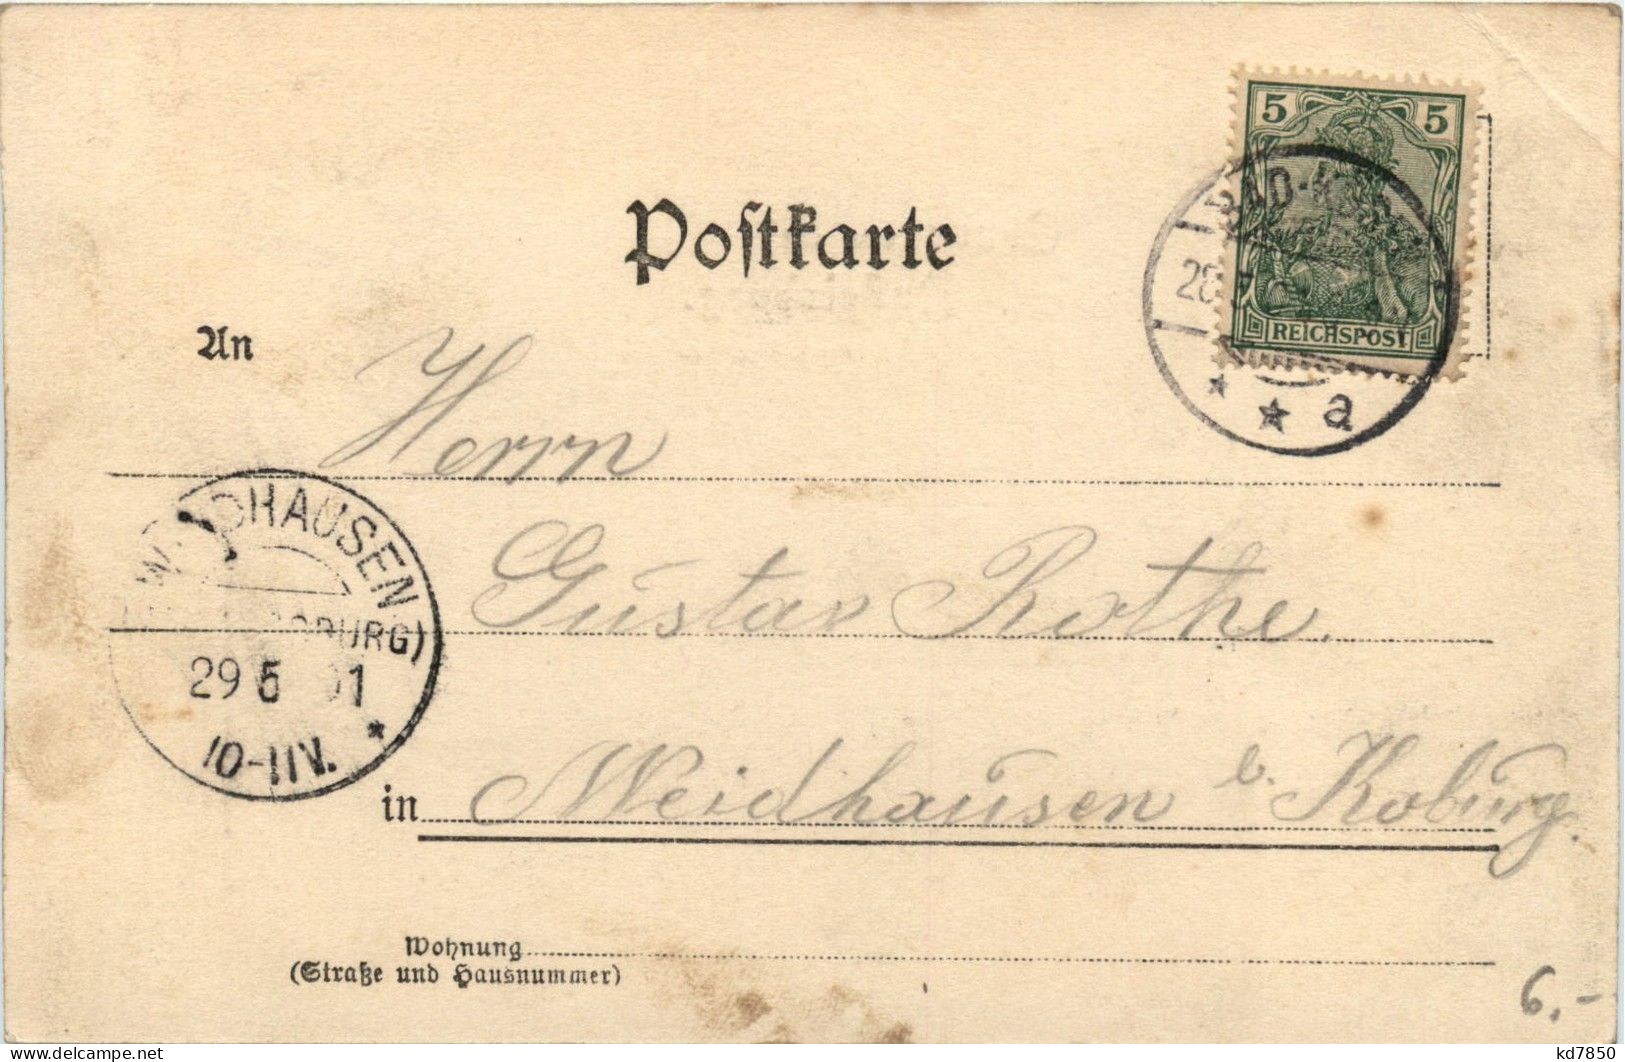 5 5
REICHSPOST
BAD-K
28
a
Postkarte
An
Herrn
Gustav Rothe.
in Weidhausen b. Koburg.
HAUSEN
BURG)
29 5 01
10-11V.
Wohnung
(Straße und Hausnummer)
6.-
delcampe.net
kd7850